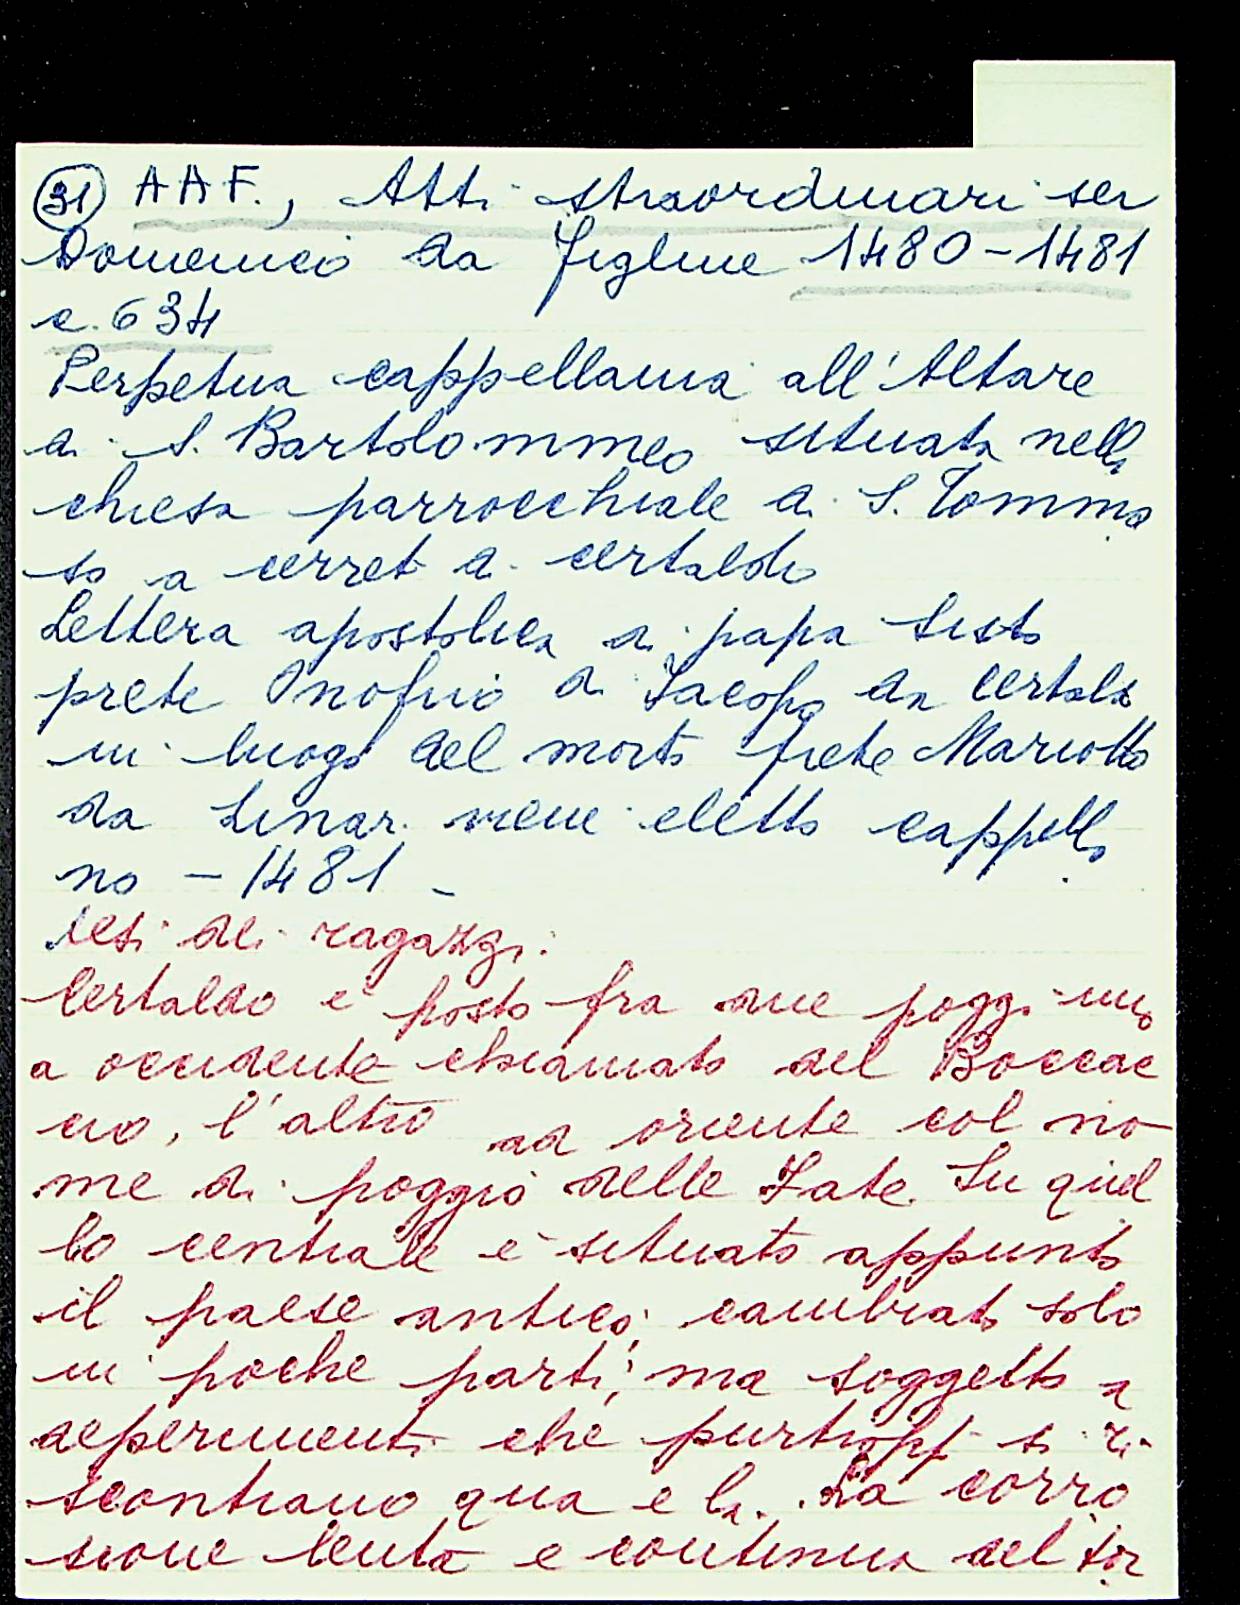 31 AAF., Atti straordinari ser
Domenico da Figline 1480-1481
c. 634
Perpetua cappellania all'Altare
di S. Bartolommeo situata nella
chiesa parrocchiale di S. Tomma
so a cerreto di certaldo
Lettera apostolica di papa Sisto
prete Onofrio di Iacopo da Certaldo
in luogo del morto prete Mariotto
da Linari viene eletto cappella
no - 1481 -
tesi dei ragazzi:
Certaldo è posto fra due poggi uno
a occidente chiamato del Boccac
cio, l'altro ad oriente col no
me di poggio delle Fate. Su quel
lo centrale è situato appunto
il paese antico, cambiato solo
in poche parti, ma soggetto a
deperimenti che purtropp si ri
scontrano qua e là. La corro
sione lenta e continua del tor